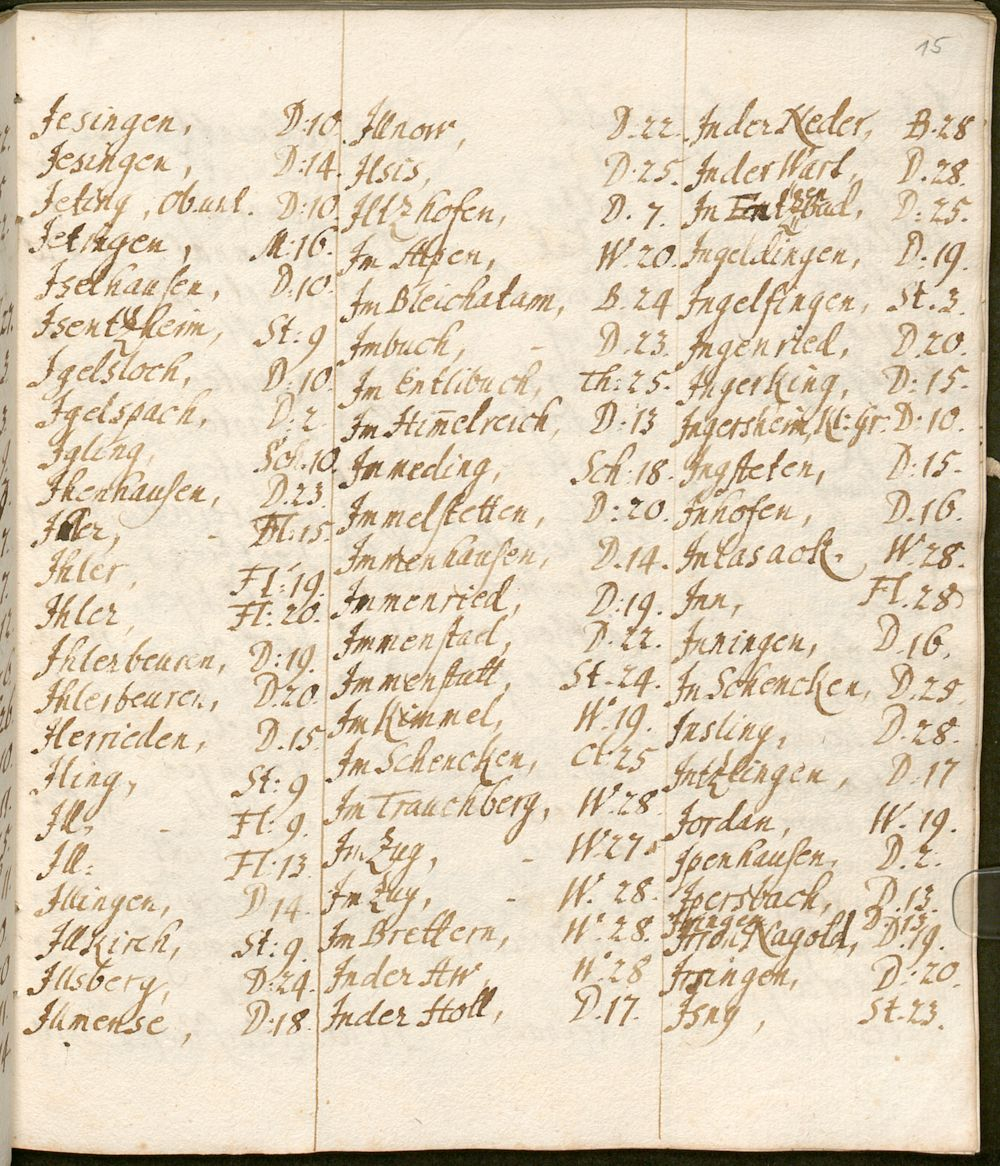 15
Jesingen, D:10.
Jesingen, D:14.
Jeting, Ob:unt. D:10.
Jetingen, M:16.
Iselhausen, D:10.
Isentzheim, St:9
Igelsloch, D:10.
Igelspach, D:2.
Igling, Sch:10.
Ihenhausen, D.23
Iller, - Fl:15.
Ihler, Fl:19.
Ihler, Fl:20.
Ihlerbeuren, D:19.
Ihlerbeuren, D.20.
Herrieden, D.15.
Iling, St:9
Ill, - Fl:9.
Ill: Fl:13.
Illingen, D14.
Illkirch, St:9.
Illsberg, D:24.
Illmense, D:18.
Illnow, D.22.
Ilsis, D:25.
Iltzhofen, D.7.
Im Alpen, W.20.
Im Bleichatam, B.24
Imbuch, - D.23.
Im Entlibuch, Th:25.
Im Him̄elreich, D:13
Immeding, Sch:18.
Immelstetten, D:20.
Immenhausen, D.14.
Immenried, D:19.
Immenstad, D.22.
Immenstatt, St.24.
Im Kimmel, W.19.
Im Schencken, Cl:25
Im Trauchberg, W.28.
Im Zug, - W.27.
Im Zug, - W.28.
Im Brettern, W.28.
In der Aw, W.28
In der Holl, D.17.
In der Neder, B.28
In der Wart, D.28.
In Bad, D:25.
Ingeldingen, D:19.
Ingelfingen, St.3.
Ingenried, D.20.
Ingerking, D:15.
Ingersheim, Kl:gr: D:10.
Ingsteten, D:15.
Inhofen, D.16.
In lasack, W.28.
Inn, Fl.28
Inningen, D.16.
In Schencken, D.25.
Insling, D.28.
Intzlingen, D:17
Jordan, W.19.
Ipenhausen, D.2.
Ipersbach, D.13.
Iringen D:13.
Nagold, D:19.
Irsingen, D:20.
Isny, St.23.